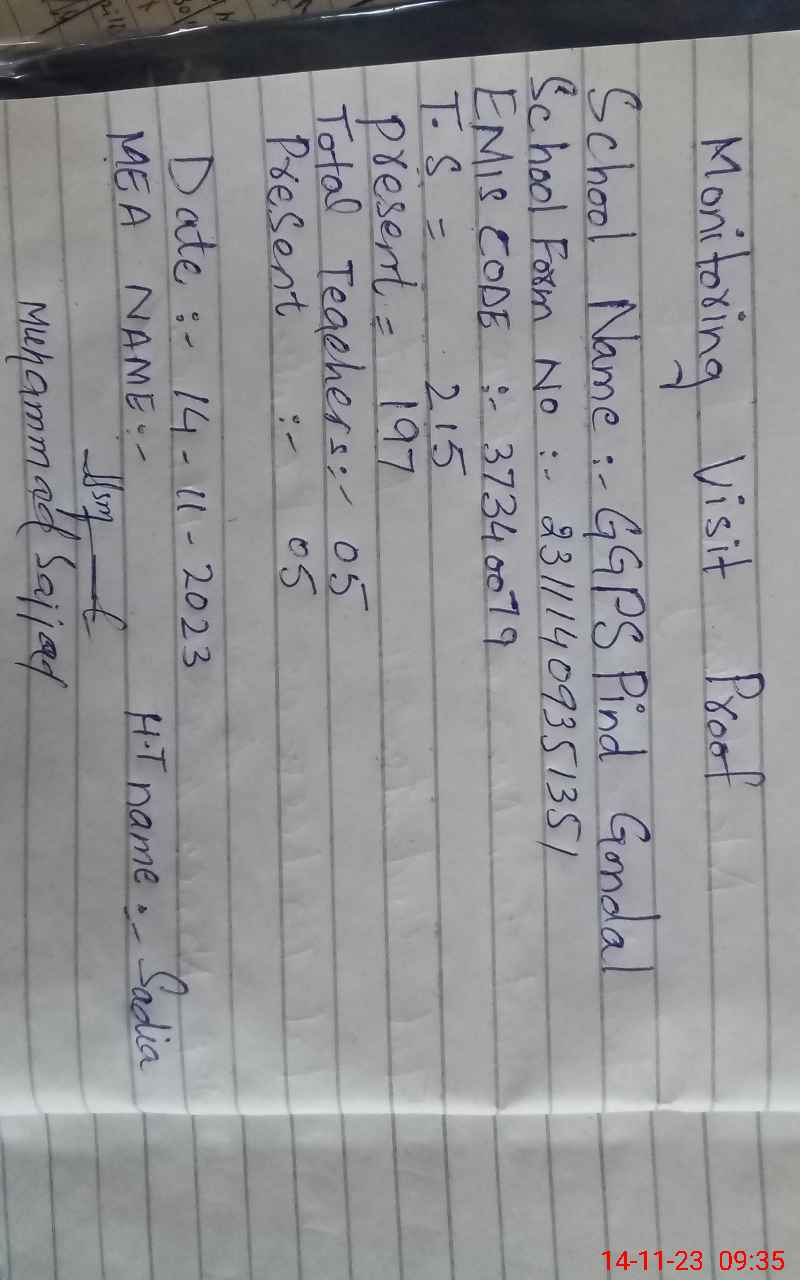 Monitoring Visit Proof
School Name :- GGPS Pind Gondal
School Form No :- 23111409351351
EMIS CODE :- 37340079
T.S = 215
Present = 197
Total Teachers:- 05
Present :- 05
Date :- 14-11-2023
MEA NAME:- H.T name :- Sadia
Muhammad Sajjad
14-11-23 09:35